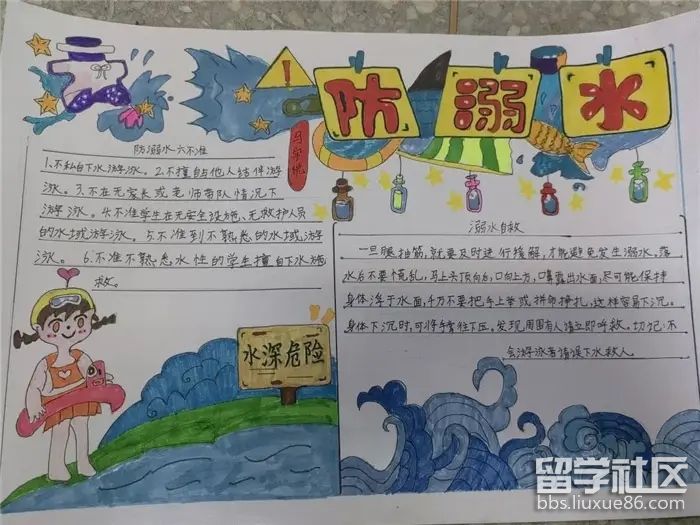 防溺水
防溺水六不准
1.不私自下水游泳。2.不擅自与他人结伴游
泳。3.不在无家长或老师带队情况下
游泳。4.不准学生在无安全设施、无救护人员
的水域游泳。5.不准到不熟悉的水域游
泳。6.不准不熟悉水性的学生擅自下水施
救。
溺水自救
一旦腿抽筋,就要及时进行缓解,才能避免发生溺水。落
水后不要慌乱,马上头顶向后,口向上方,嘴露出水面,尽可能保持
身体浮于水面,千万不要把手上举或拼命挣扎,这样容易下沉。
身体下沉时,可将手掌往下压,发现周围有人请立即呼救。切记:不
会游泳者请误下水救人
水深危险
留学社区
bbs.liuxue86.com